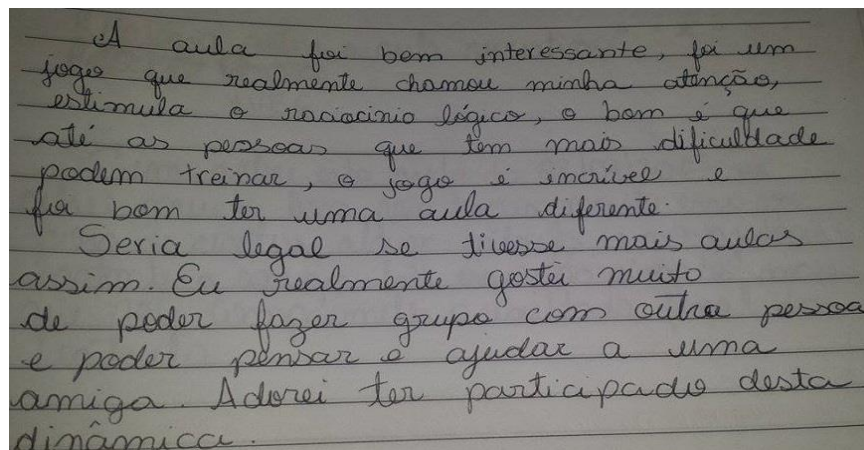 A aula foi bem interessante, foi um
jogo que realmente chamou minha atenção,
estimula o raciocinio lógico, o bom é que
até as pessoas que tem mais dificuldade
podem treinar, o jogo é incrível e
foi bom ter uma aula diferente.
Seria legal se tivesse mais aulas
assim. Eu realmente gostei muito
de poder fazer grupo com outra pessoa
e poder pensar e ajudar a uma
amiga. Adorei ter participado desta
dinâmica.